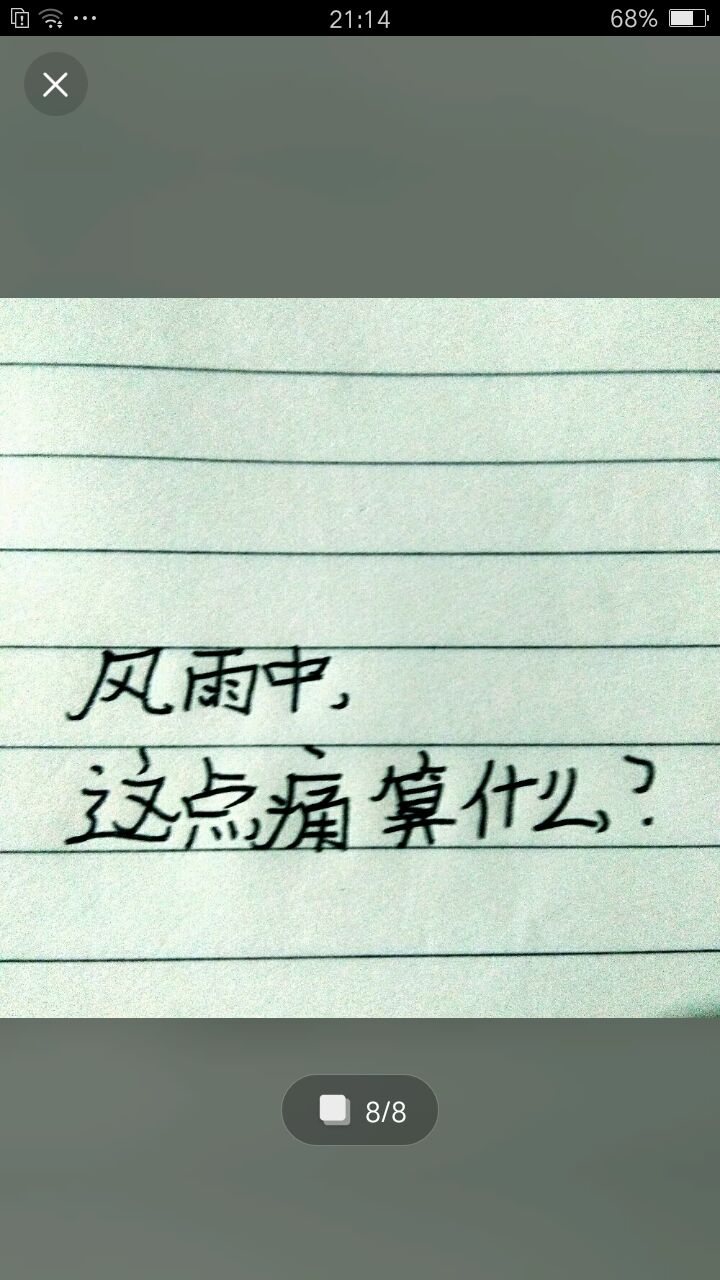 21:14
68%
风雨中,
这点痛算什么?
8/8